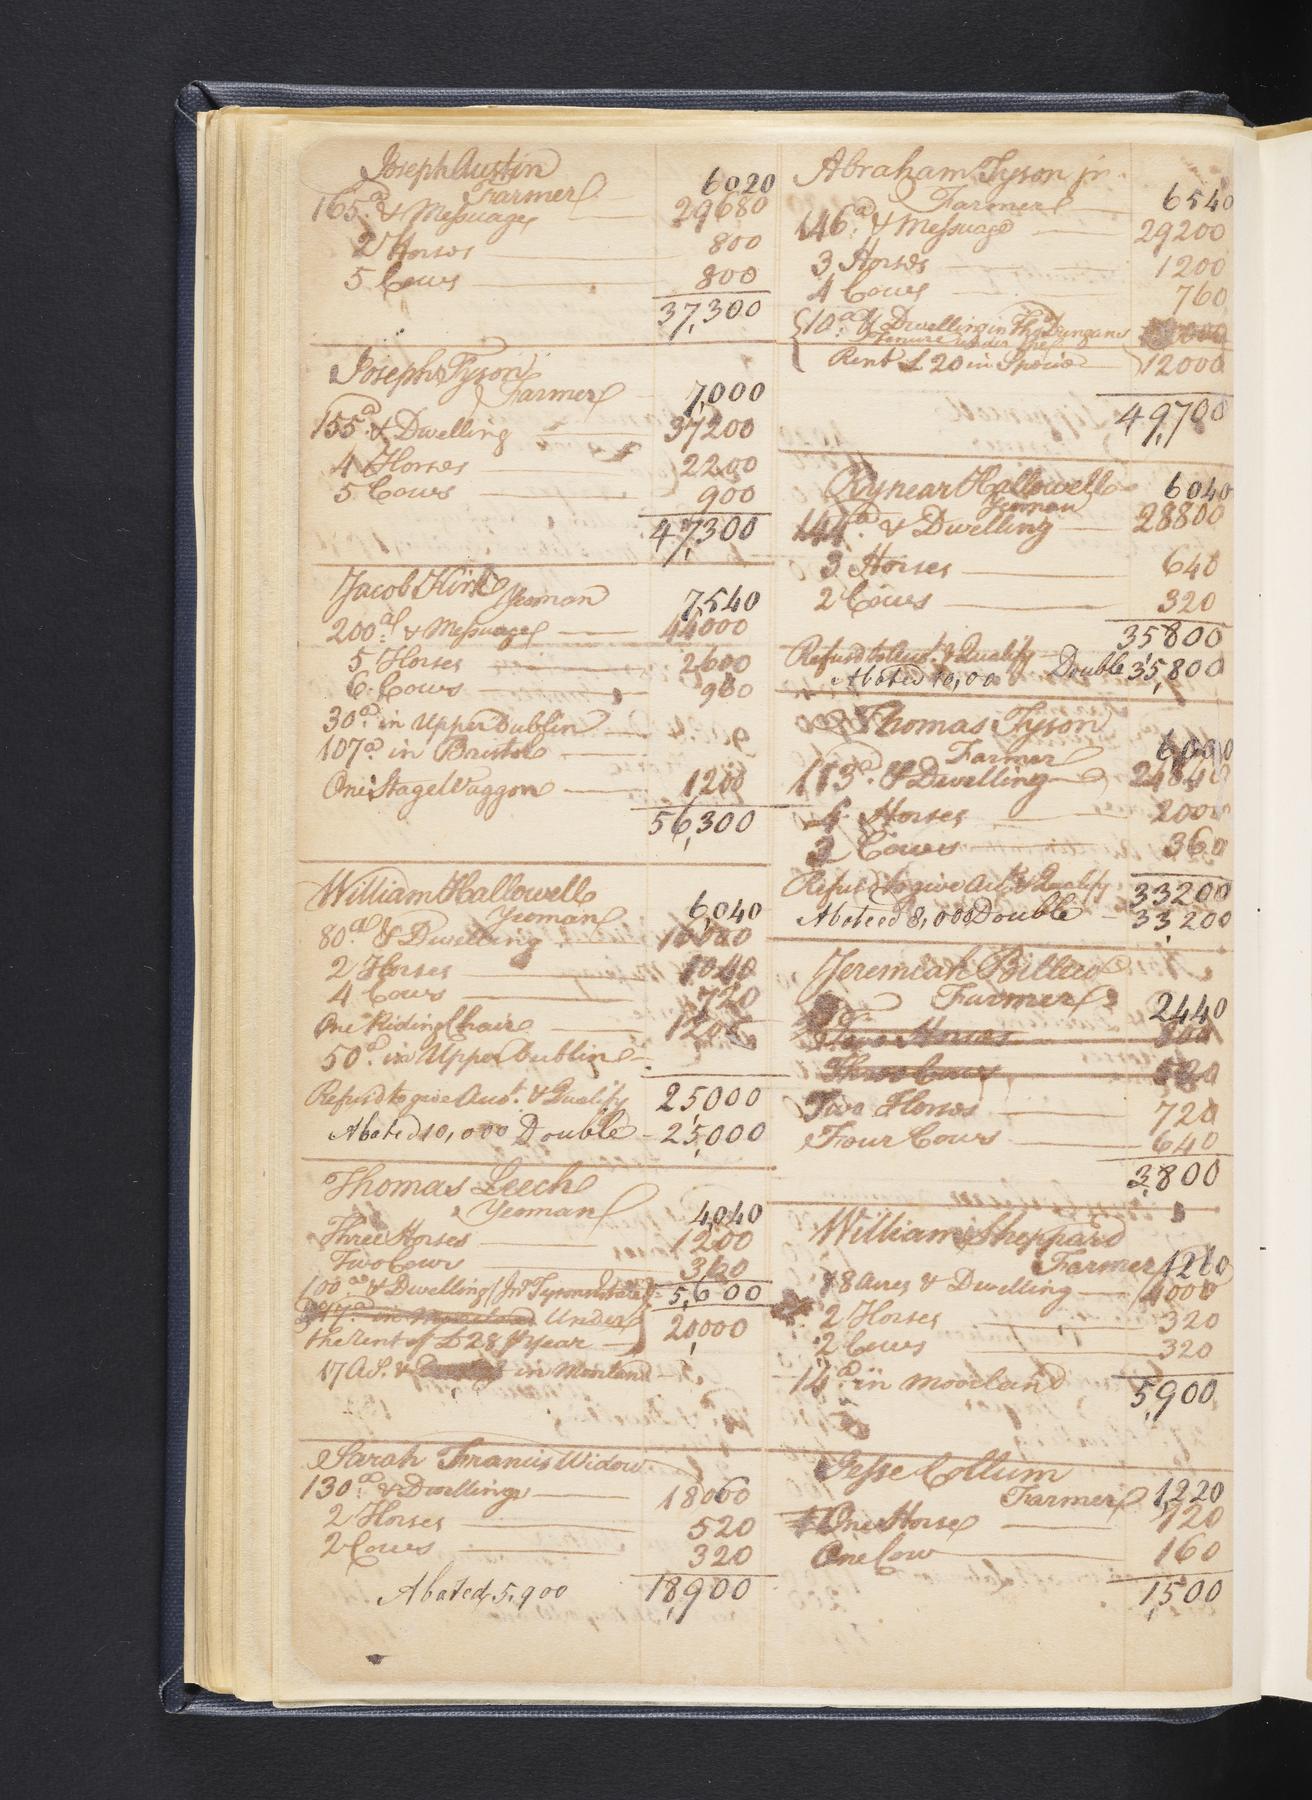 Joseph Austin
Farmer 6020
165.a & Messuage 29680
2 Horses 800
5 Cows 800
37,300
Joseph Tyson
Farmer 7,000
155.a & Dwelling 37200
4 Horses 2200
5 Cows 900
47,300
Jacob Kirk
Yeoman 7,540
200.a & Messuage 44000
5 Horses 2600
6 Cows 960
30.a in Upper Dublin
107.a in Bristol
One Stage Waggon 1200
56,300
William Hallowell
Yeoman 6,040
80.a & Dwelling 16000
2 Horses 1040
4 Cows 720
One Riding Chair 1200
50.a in Upper Dublin
Refusd to give Acct. & Qualify 25,000
Abated 10,000 Double 25,000
Thomas Leech
Yeoman 4,040
Three Horses 1200
Two Cows 360
100.as & Dwelling (Jno. Tysons Estate) 5,600
in Moreland Under
the Rent of £28 P year 20000
17 As. & in Morland
Sarah Francis Widow
130.a & Dwelling 18060
2 Horses 520
2 Cows 320
Abated, 5,900 18,900
Abraham Tyson jr.
Farmer 6540
146.a & Messuage 29200
3 Horses 1200
4 Cows 760
10.a & Dwelling in Thos. Duncans
Tenure under the
Rent £20 in Specie 12000
49,700
Rynear Hallowell 6040
Yeoman
144.a & Dwelling 28800
3 Horses 640
2 Cows 320
35800
Refusd to Acct. & Qualify
Abated 10,000 Double 35,800
Thomas Tyson
Farmer
113.a & Dwelling 24840
4 Horses 2000
2 Cows 360
Refusd to give Act. & Qualify 33200
Abated 8,000 Double 33,200
Jeremiah Billew
Farmer 2440
Two Horses 800
Three Cows
Two Horses 720
Four Cows 640
3,800
William Sheppard
Farmer 1260
18 Acres & Dwelling 4000
2 Horses 320
2 Cows 320
14.a in mooreland 5,900
Jesse Collum
Farmer 1,220
One Horse 120
One Cow 160
1,500